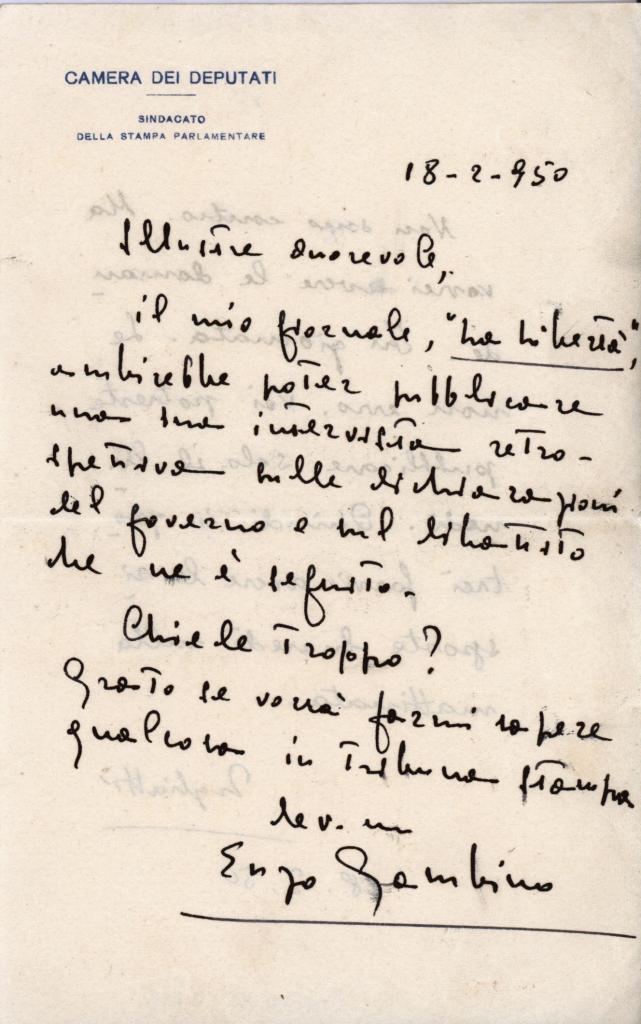 CAMERA DEI DEPUTATI
SINDACATO
DELLA STAMPA PARLAMENTARE
18-2-950
Illustre onorevole,
il mio giornale, "La Libertà",
ambirebbe poter pubblicare
una sua intervista retro-
spettiva sulle dichiarazioni
del governo e sul dibattito
che ne è seguito.
Chiede troppo?
Grato se vorrà farmi sapere
qualcosa in tribuna stampa
dev. mo
Enzo Gambino